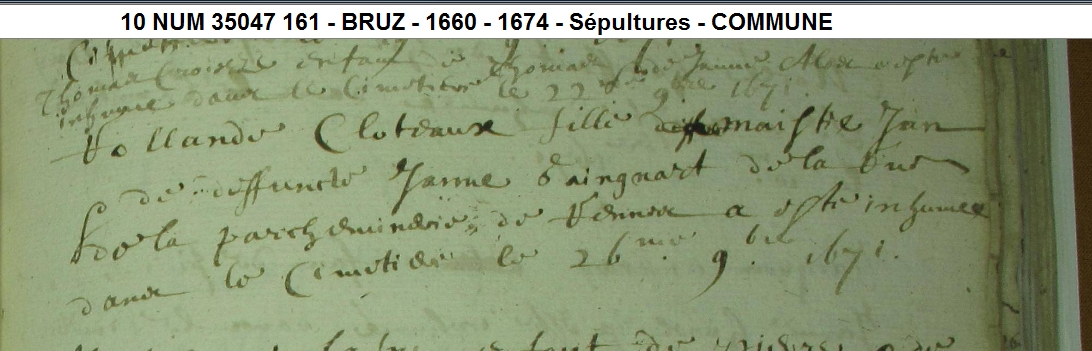 10 NUM 35047 161 - BRUZ - 1660 - 1674 - Sépultures - COMMUNE
Thomas Croisze enfant de Thomas & de Janne a este
inhume dans le Cimetiere le 22me 9bre 1671.
Yollande Cloteaux fille de maistre Jan
& de deffuncte Janne Saingnart de la Rue
de la parcheminerie de Rennes a este inhumee
dans le Cimetiere le 26me. 9bre. 1671.